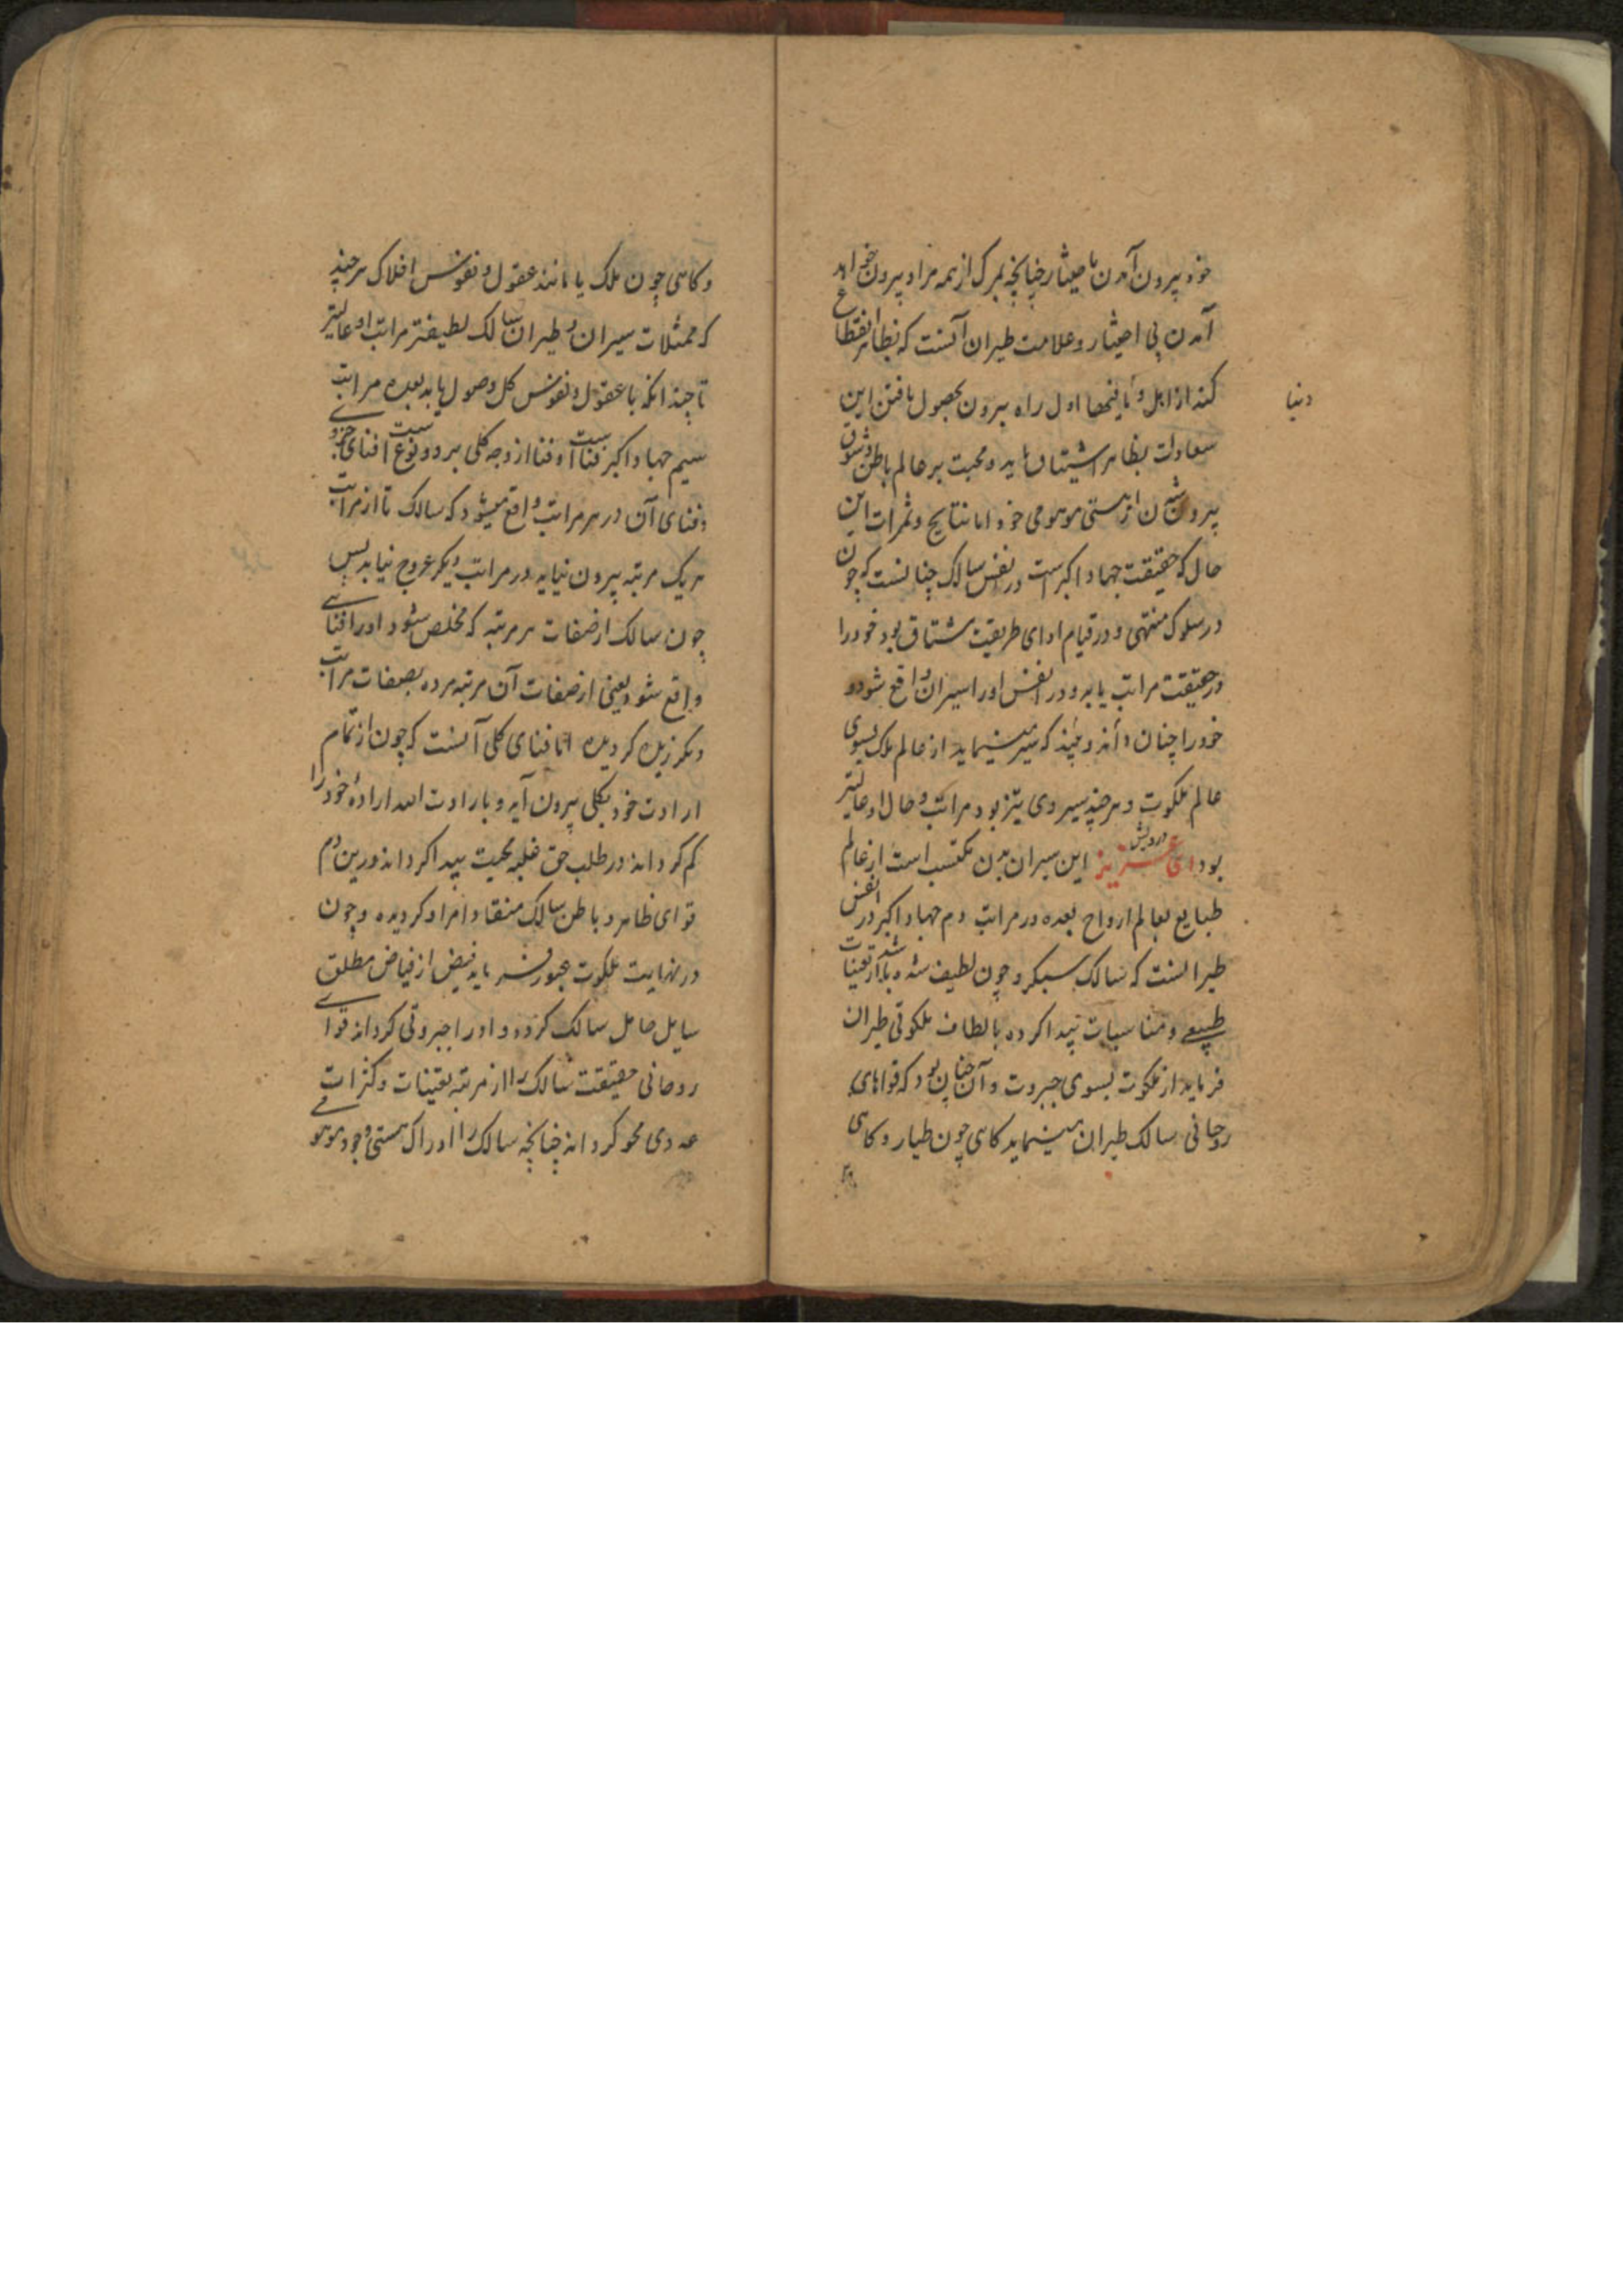 خود بیرون آمدن باختیار چنانچه بمرک از همه مراد بیرون خواهد
آمدن بی اختیار و علامت طیران آنست که بظاهر انقطاع
کند از اهل دنیا و مافیها اول راه بیرون بحصول یافتن این
سعادات بظاهر اشتیاق یابد و محبت بر عالم باطن و شوق
بیرون شدن از هستی موهومی خود اما نتایج و ثمرات این
حال که حقیقت جهاد اکبر است در نفس سالک چنانست که چون
در سلوک منتهی و در قیام ادای طریقیت مشتاق بود خود را
در حقیقت مراتب یابد و در انفس او را سیران واقع شود و
خود را چنان داند و بیند که سیر مینماید از عالم ملک بسوی
عالم ملکوت و هر چند سیر وی تیز بود مراتب و حال او عالیتر
بود ای عزیز درویش این سیران بدن مکتسب است از عالم
طبایع بعالم ارواح بعده در مراتب دم جهاد اکبر در انفس
طیرانست که سالک سبکرو چون لطیف شده باشد از تعینات
طبیعی و مناسبات پیدا کرده بالطاف ملکوتی طیران
فرماید از ملکوت بسوی جبروت و آن چنان بود که قواهای
روحانی سالک طیران مینماید کاهی چون طیار و کاهی
دنیا
و کاهی چون ملک یا مانند عقول و نفوس افلاک هر چند
که ممثلات سیران و طیران سالک لطیفتر مراتب او عالیتر
تا چندانکه با عقول و نفوس کل وصول یابد بعده مراتب
سیم جهاد اکبر فناست و فنا از وجه کلی بر دو نوعست افنای جزوی
و فنای آن در هر مراتب واقع میشود که سالک تا از مراتب
هر یک مرتبه بیرون نیاید در مراتب دیکر عروج نیابد پس
چون سالک از صفات هر مرتبه که مخلص شود او را فنایی
واقع شود یعنی از صفات آن مرتبه مرده بصفات مراتب
دیکر زنده کردیده اما فنای کلی آنست که چون از تمام
ارادت خود بکلی بیرون آید و بارادت الله ارادهٔ خود را
کم کرداند در طلب حق غلبه محبت پیدا کرداند درین دم
قوای ظاهر و باطن سالک منقاد امراد کردیده و چون
در نهایت ملکوت عبور فرماید فیض از فیاض مطلق
سایل حامل سالک کرده و او را جبروتی کرداند قوای
روحانی حقیقت سالک را از مرتبه تعینات و کثرات
عددی محو کرداند چنانچه سالک را ادراک هستی وجود موهومی